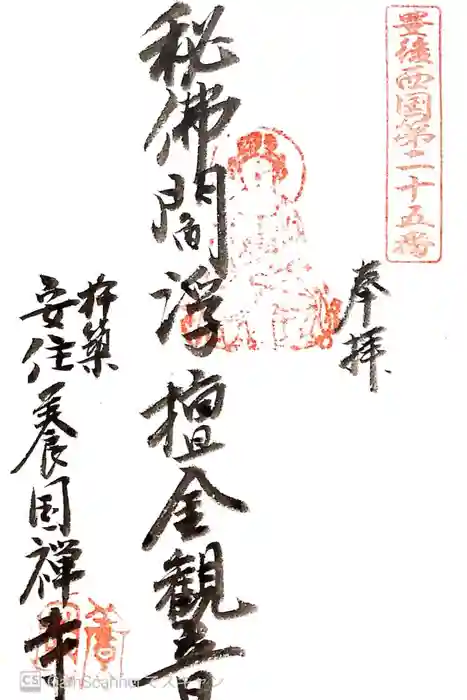 豊後西国第二十五番
奉拝
秘佛閻浮檀金観音
杵築
安住 養国禅寺
CS CamScanner でスキャン